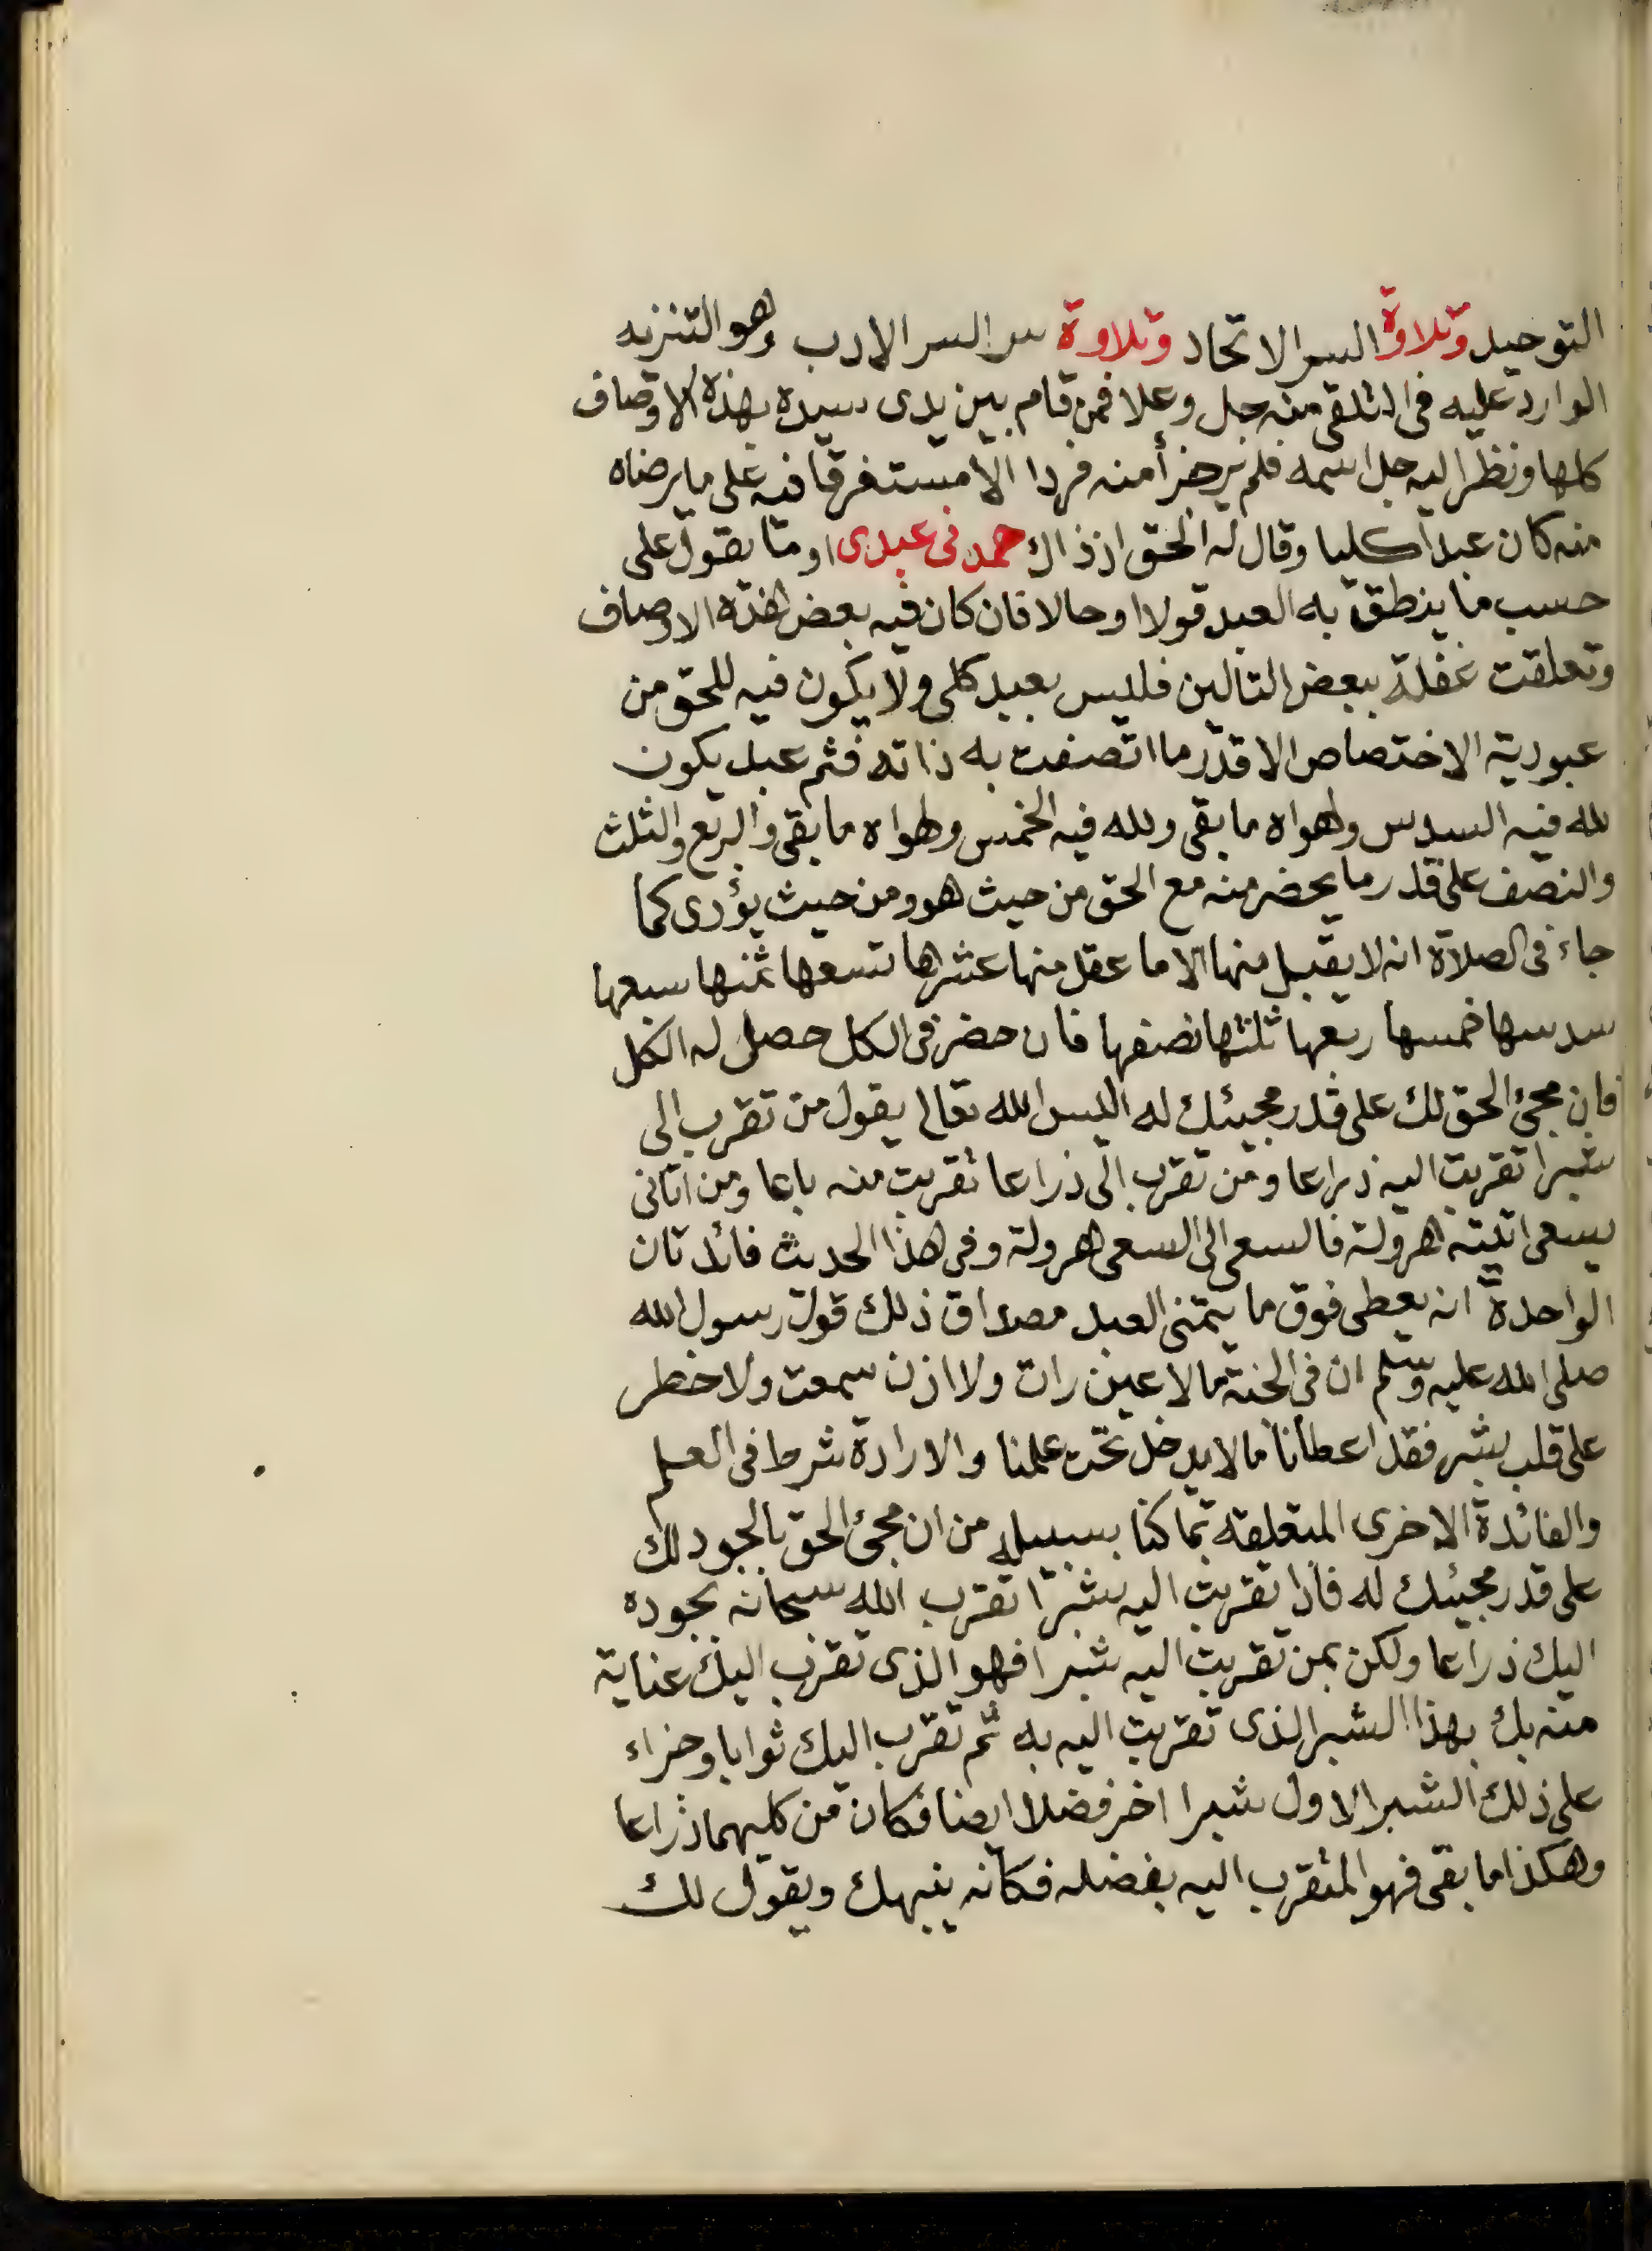 التوحيد وتلاوة السر الاتحاد وتلاوة سر السر الادب وهو التنزيه
الوارد عليه فى التلقى منه جل وعلا فمن قام بين يدى سيده بهذه الاوصاف
كلها ونظر اليه جل اسمه فلم ير جزأ منه فردا الا مستغرقا فيه على ما يرضاه
منه كان عبدا كليا وقال له الحق اذ ذاك حمدنى عبدى او ما يقول على
حسب ما ينطق به العبد قولا او حالا فان كان فيه بعض هذه الاوصاف
وتعلقت غفلة ببعض التالين فليس بعبد كلى ولا يكون فيه للحق من
عبودية الاختصاص الا قدر ما اتصفت به ذاته فثم عبد يكون
لله فيه السدس ولهواه ما بقى ولله فيه الخمس ولهواه ما بقى والربع والثلث
والنصف على قدر ما يحضر منه مع الحق من حيث هو ومن حيث يؤدى كما
جاء فى الصلاة انه لا يقبل منها الا ما عقل منها عشرها تسعها ثمنها سبعها
سدسها خمسها ربعها ثلثها نصفها فان حضر فى الكل حصل له الكل
فان مجئ الحق لك على قدر مجيئك له اليس الله تعالى يقول من تقرب الى
شبرا تقربت اليه ذراعا ومن تقرب الى ذراعا تقربت منه باعا ومن اتانى
يسعى اتيته هرولة فالسعى الى السعى هرولة وفى هذا الحديث فائدتان
الواحدة انه يعطى فوق ما يتمنى العبد مصداق ذلك قول رسول الله
صلى الله عليه وسلم ان فى الجنة ما لا عين رات ولا اذن سمعت ولا خطر
على قلب بشر فقد اعطانا ما لا يدخل تحت علمنا والارادة شرط فى العلم
والفائدة الاخرى المتعلقة بما كنا بسبيله من ان مجئ الحق بالجود لك
على قدر مجيئك له فاذا تقربت اليه شبرا تقرب الله سبحانه بجوده
اليك ذراعا ولكن بمن تقربت اليه شبرا فهو الذى تقرب اليك عناية
منه بك بهذا الشبر الذى تقربت اليه به ثم تقرب اليك ثوابا وجزاء
على ذلك الشبر الاول شبرا اخر فضلا ايضا فكان من كليهما ذراعا
وهكذا ما بقى فهو المتقرب اليه بفضله فكانه ينبهك ويقول لك